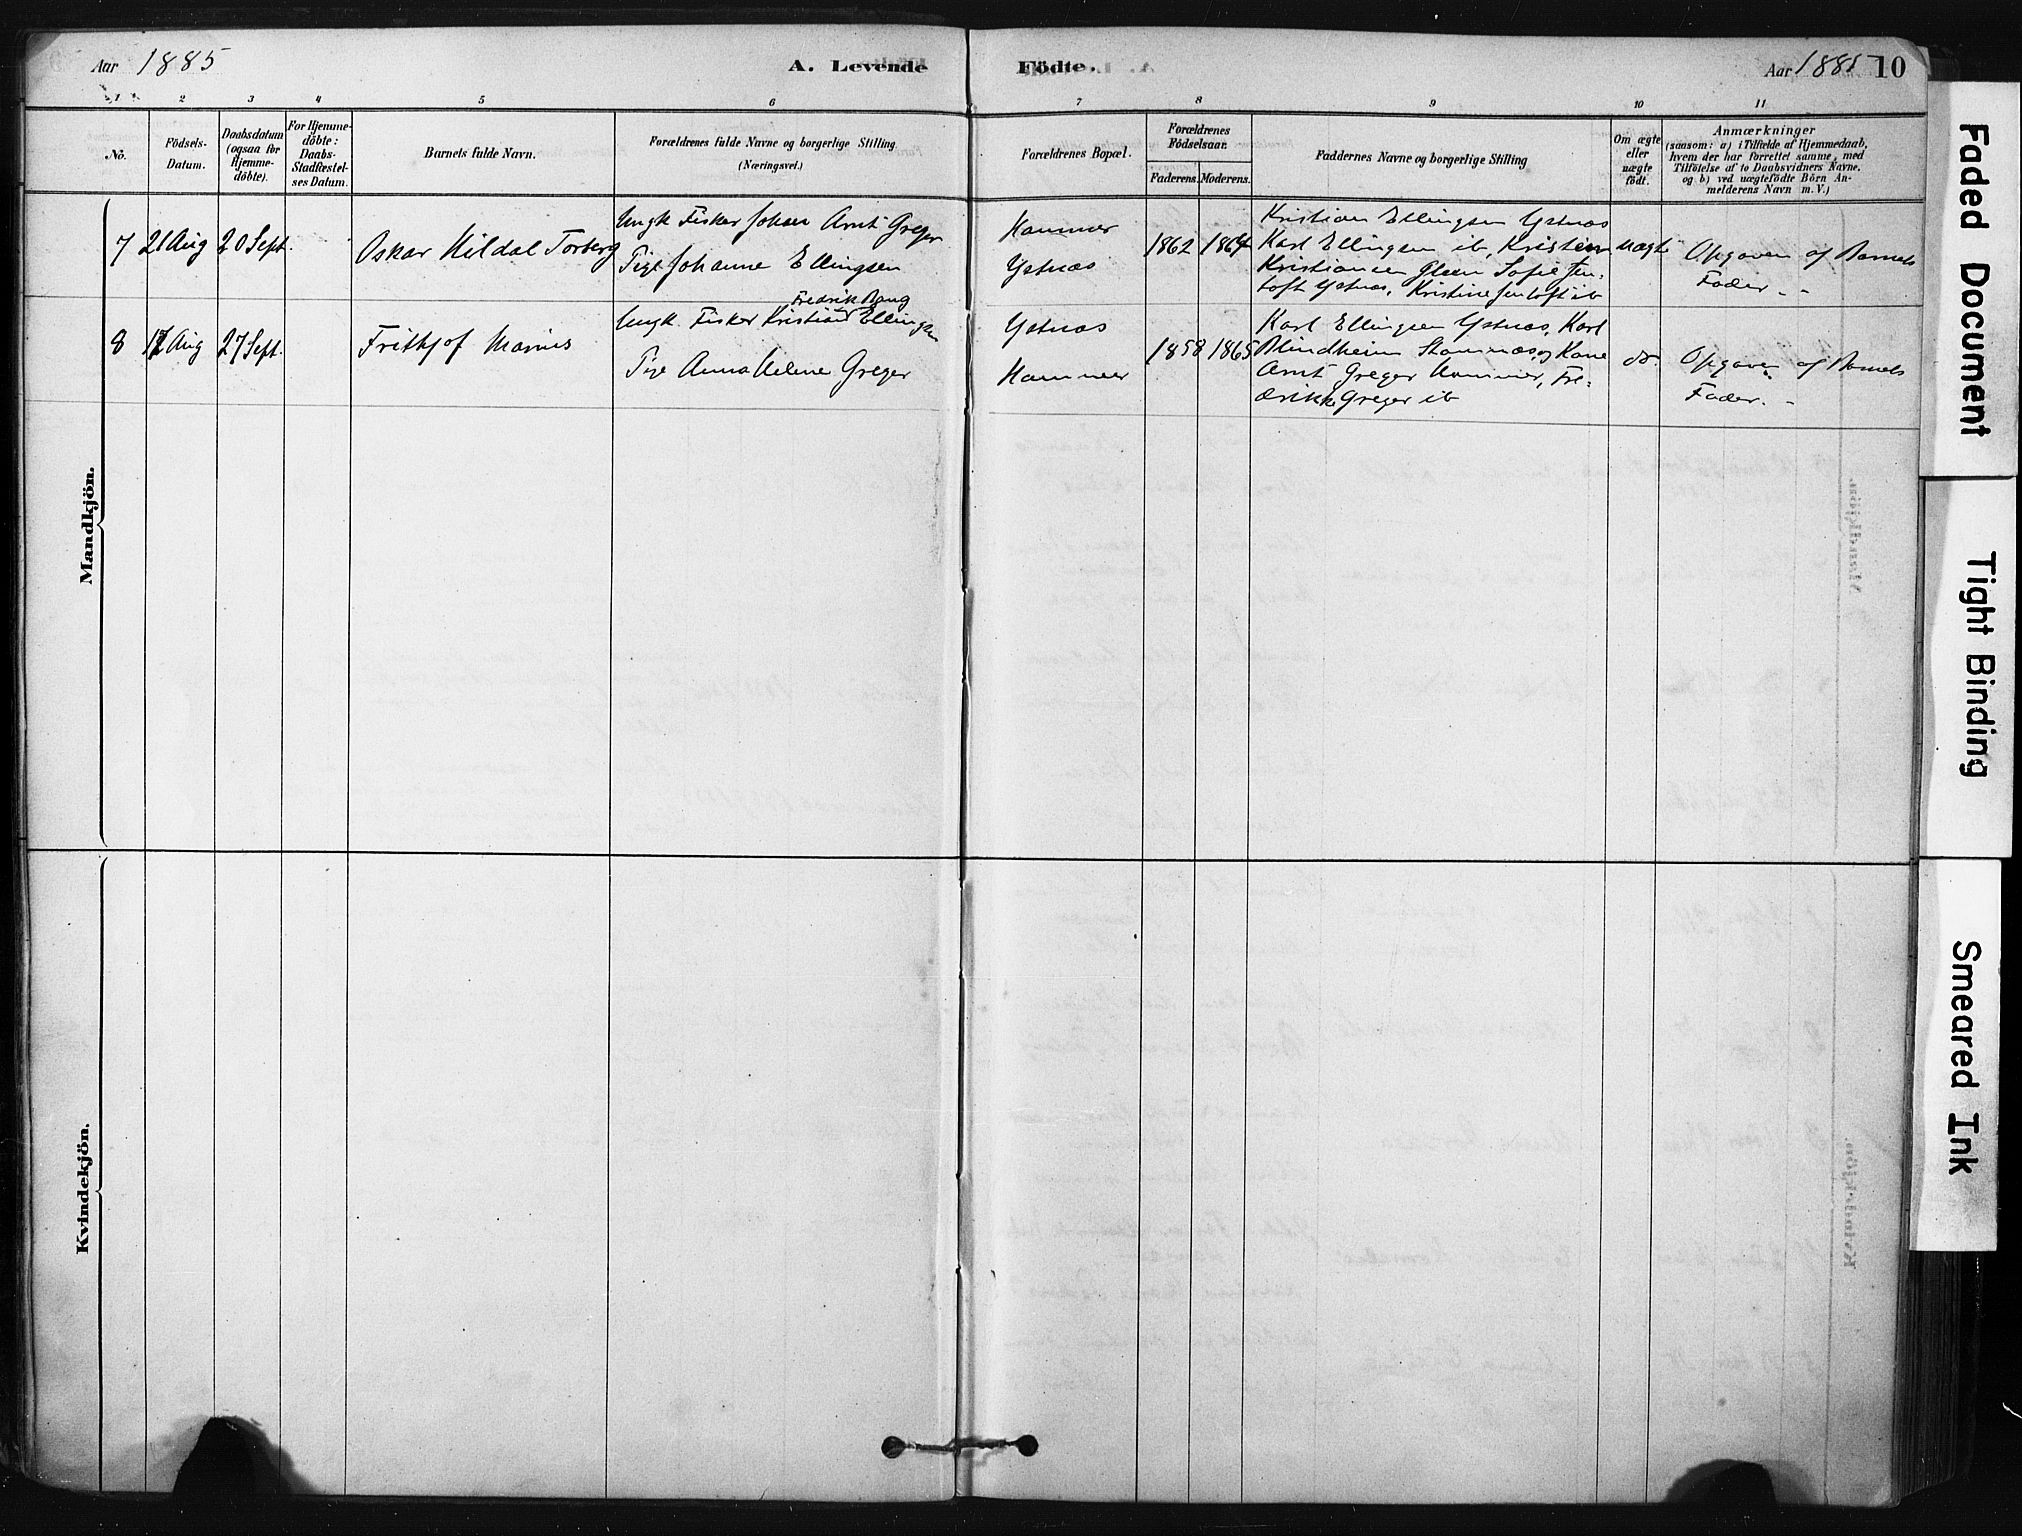 Aar 1885
A. Levende
Födte.
Aar 1885 10
1 2 3 4 5 6 7 8 9 10 11
No.
Födsels-
Datum.
Daabsdatum
(ogsaa for
Hjemme-
döbte).
For Hjemme-
döbte:
Daabs-
Stadfæstel-
ses Datum.
Barnets fulde Navn.
Forældrenes fulde Navne og borgerlige Stilling
(Næringsvei.)
Forældrenes Bopæl.
Forældrenes
Födselsaar.
Faderens. Moderens.
Faddernes Navne og borgerlige Stilling
Om ægte
eller
uægte
födt.
Anmærkninger
(saasom: a) i Tilfælde af Hjemmedaab,
hvem der har forrettet samme, med
Tilföielse af to Daabsvidners Navne,
og b) ved uægtefödte Börn An-
melderens Navn m. V.)
Mandkjön.
7 21 Aug 20 Sept. Oskar Hildal Torberg
Ungk Fisker Johan Arnt Greger
Pige Johanne Ellingsen
Hammer
Ystnæs
1862 1864
Kristian Ellingsen Ystnæs
Karl Ellingsen ib, Kristian
Kristiansen Gleen Sofie Jen-
toft Ystnæs, Kristine Jentoft ib
uægte
Opgaven af Barnets
Fader. -
8 17 Aug 27 Sept. Frithjof Marius
Fredrik Bang
Ungk. Fisker Kristian Ellingsen
Pige Anna Helene Greger
Ystnæs
Hammer
1858 1865
Karl Ellingsen Ystnæs, Karl
Blindheim Stamnæs, og Kone
Arnt Greger Hammer, Fre-
drikke Greger ib
do.
Opgaven af Barnets
Fader. -
Kvindekjön.
Faded Document
Tight Binding
Smeared Ink